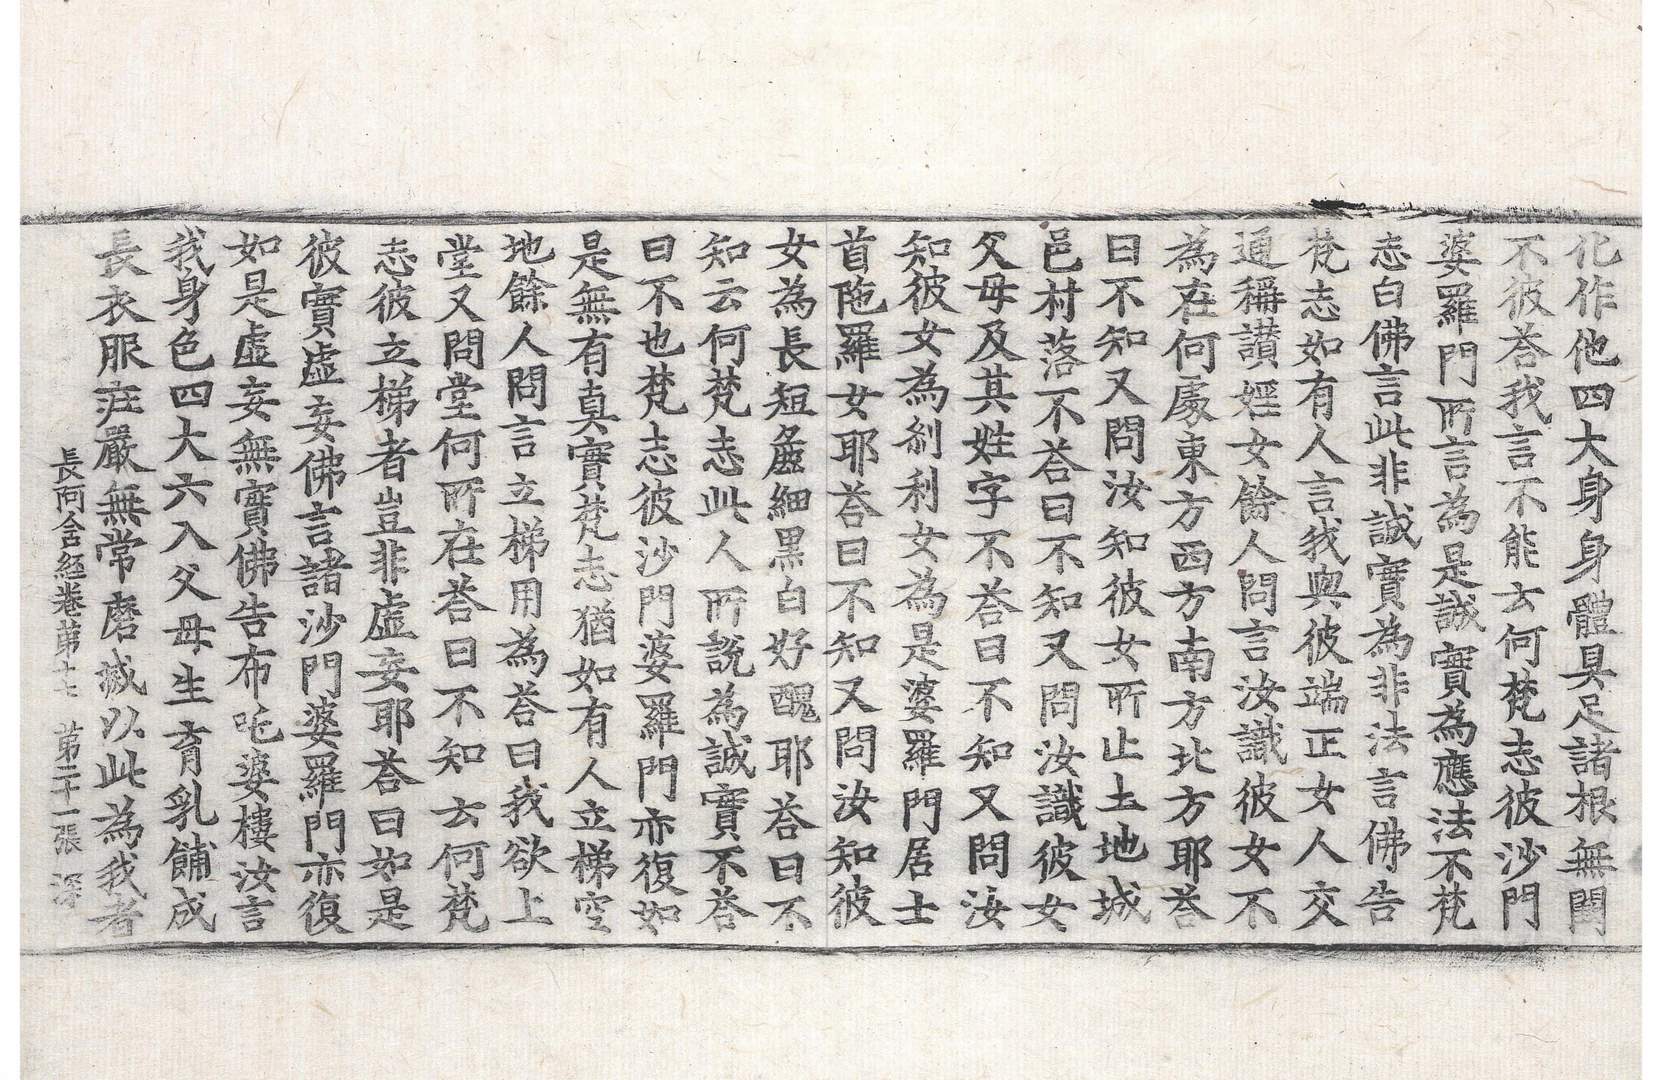 化作他四大身身體具足諸根無闕
不彼荅我言不能云何梵志彼沙門
婆羅門所言為是誠實為應法不梵
志白佛言此非誠實為非法言佛告
梵志如有人言我與彼端正女人交
通稱讃婬女餘人問言汝識彼女不
為在何處東方西方南方北方耶荅
曰不知又問汝知彼女所止土地城
邑村落不荅曰不知又問汝識彼女
父母及其姓字不荅曰不知又問汝
知彼女為刹利女為是婆羅門居士
首陁羅女耶荅曰不知又問汝知彼
女為長短麁細黒白好醜耶荅曰不
知云何梵志此人所說為誠實不荅
曰不也梵志彼沙門婆羅門亦復如
是無有真實梵志猶如有人立梯空
地餘人問言立梯用為荅曰我欲上
堂又問堂何所在荅曰不知云何梵
志彼立梯者豈非虛妄耶荅曰如是
彼實虛妄佛言諸沙門婆羅門亦復
如是虛妄無實佛告布吒婆樓汝言
我身色四大六入父母生育乳餔成
長衣服莊嚴無常磨滅以此為我者
長阿含經卷苐十七 苐二十一張 深